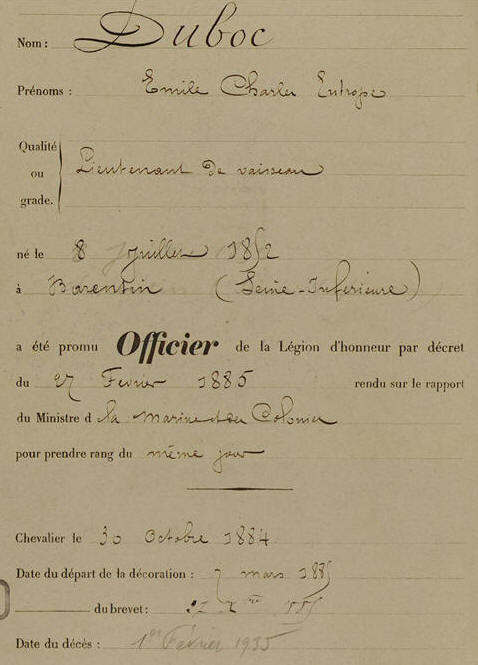 Nom : Duboc
Prénoms : Emile Charles Eutrope
Qualité
ou Lieutenant de vaisseau
grade.
né le 8 juillet 1852
à Barentin (Seine-Inférieure)
a été promu Officier de la Légion d'honneur par décret
du 27 Fevrier 1885 rendu sur le rapport
du Ministre d la Marine et des Colonies
pour prendre rang du même jour
Chevalier le 30 Octobre 1884
Date du départ de la décoration : 7 mars 1885
du brevet : 1885
Date du décès : 1er Février 1935